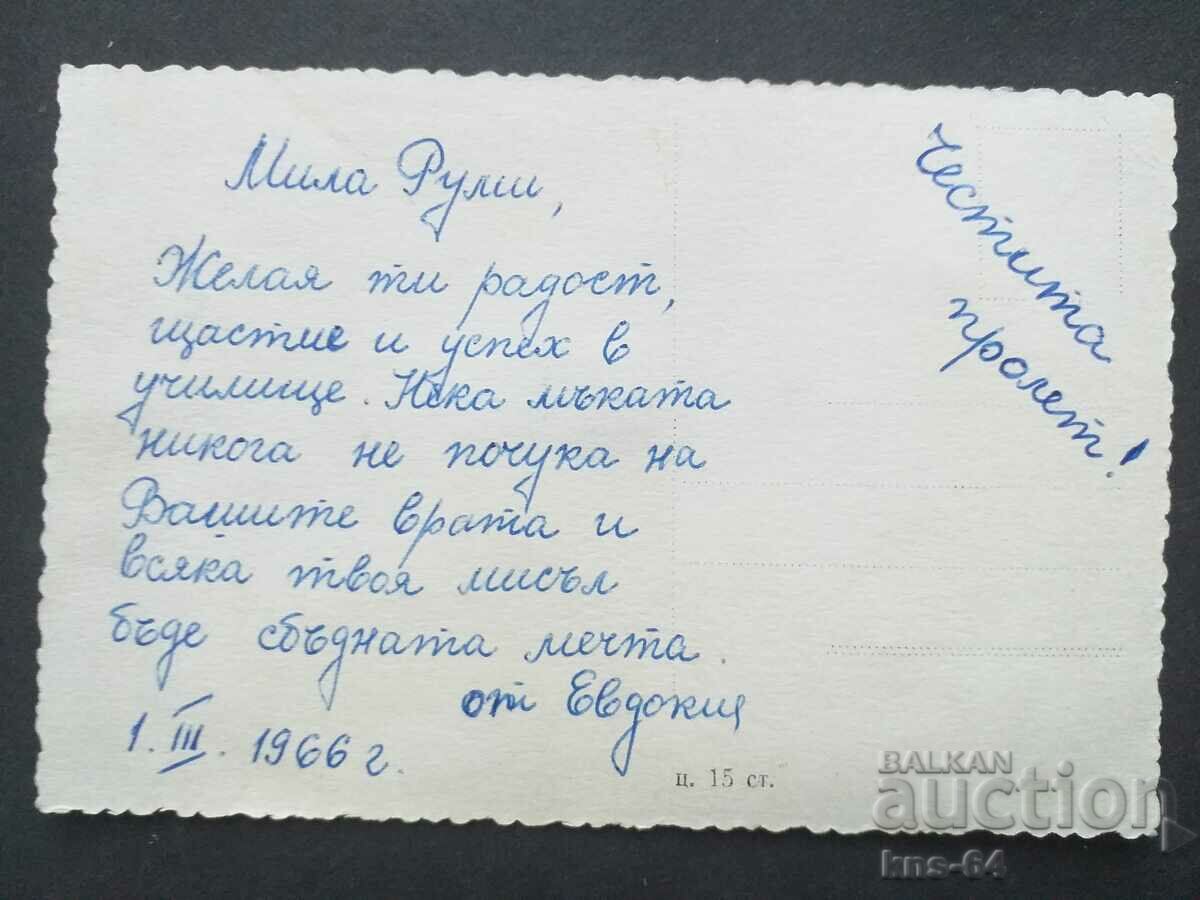 Мила Руми,
Желая ти радост,
щастие и успех в
училище. Нека мъката
никога не почука на
Вашите врата и
всяка твоя мисъл
бъде сбъдната мечта.
от Евдокия
1. III. 1966 г.
Честита
пролет!
ц. 15 ст.
BALKAN
auction
kns-64